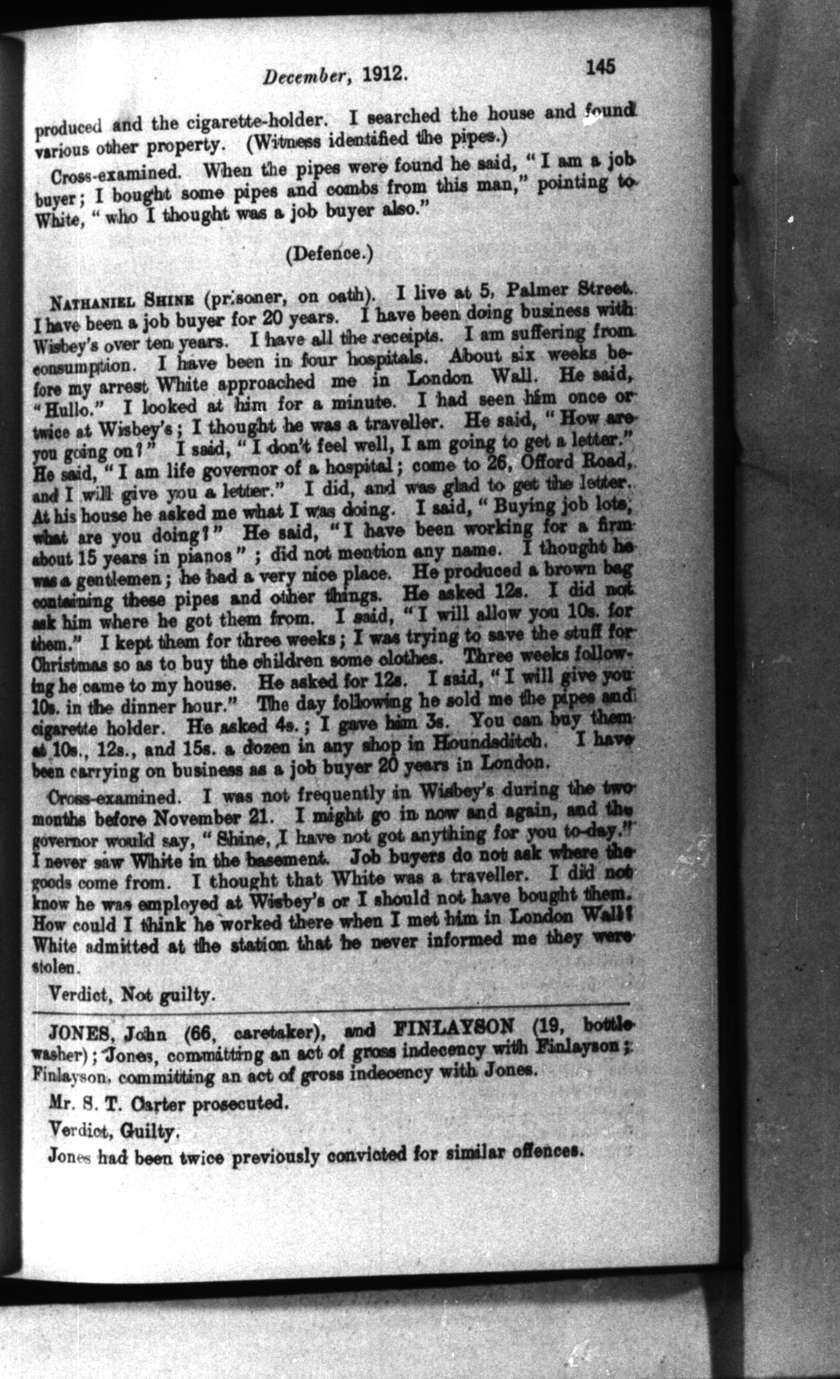 December, 1912.
145
produced and the cigarette-holder. I searched the house and found
various other property. (Witness identified the pipes.)
Cross-examined. When the pipes were found he said, “ I am a job
buyer; I bought some pipes and combs from this man,” pointing to
White, “ who I thought was a job buyer also.”
(Defence.)
NATHANIEL SHINE (prisoner, on oath). I live at 5, Palmer Street.
I have been a job buyer for 20 years. I have been doing business with
Wisbey's over ten years. I have all the receipts. I am suffering from
consumption. I have been in four hospitals. About six weeks be-
fore my arrest White approached me in London Wall. He said,
“Hullo.” I looked at him for a minute. I had seen him once or
twice at Wisbey's; I thought he was a traveller. He said, “ How are
you going on? ” I said, “ I don't feel well, I am going to get a letter.”
He said, “ I am life governor of a hospital; come to 26, Offord Road,
and I will give you a letter.” I did, and was glad to get the letter.
At his house he asked me what I was doing. I said, “ Buying job lots;
what are you doing? ” He said, “I have been working for a firm
about 15 years in pianos ” ; did not mention any name. I thought he
was a gentlemen; he had a very nice place. He produced a brown bag
containing these pipes and other things. He asked 12s. I did not
ask him where he got them from. I said, “ I will allow you 10s. for
them.” I kept them for three weeks; I was trying to save the stuff for
Christmas so as to buy the children some clothes. Three weeks follow-
ing he came to my house. He asked for 12s. I said, “ I will give you
10s. in the dinner hour.” The day following he sold me the pipes and
cigarette holder. He asked 4s.; I gave him 3s. You can buy them
at 10s., 12s., and 15s. a dozen in any shop in Houndsditch. I have
been carrying on business as a job buyer 20 years in London.
Cross-examined. I was not frequently in Wisbey's during the two
months before November 21. I might go in now and again, and the
governor would say, “ Shine, I have not got anything for you to-day.”
I never saw White in the basement. Job buyers do not ask where the
goods come from. I thought that White was a traveller. I did not
know he was employed at Wisbey's or I should not have bought them.
How could I think he worked there when I met him in London Wall?
White admitted at the station that he never informed me they were
stolen.
Verdict, Not guilty.
JONES, John (66, caretaker), and FINLAYSON (19, bottle-
washer); Jones, committing an act of gross indecency with Finlayson;
Finlayson, committing an act of gross indecency with Jones.
Mr. S. T. Carter prosecuted.
Verdict, Guilty.
Jones had been twice previously convicted for similar offences.